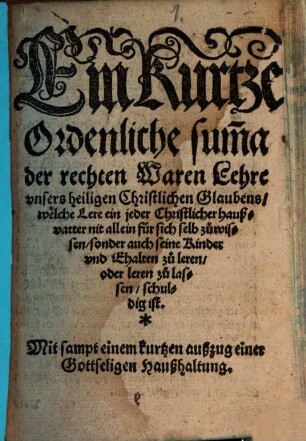 1.
Ein Kurtze
Ordenliche sum̃a
der rechten Waren Lehre
vnsers heiligen Christlichen Glaubens/
wẽlche Lere ein jeder Christlicher hauß-
vatter nit allein für sich selb zůwis-
sen/sonder auch seine Kinder
vnd Ehalten zů leren/
oder leren zů las-
sen/schul-
dig ist.
*
Mit sampt einem kurtzen außzug einer
Gottseligen Haußhaltung.